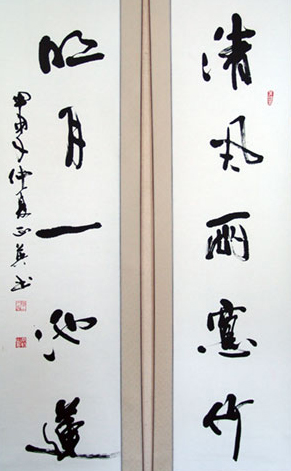 清风兩窗竹
明月一池蓮
甲申年仲夏正英书